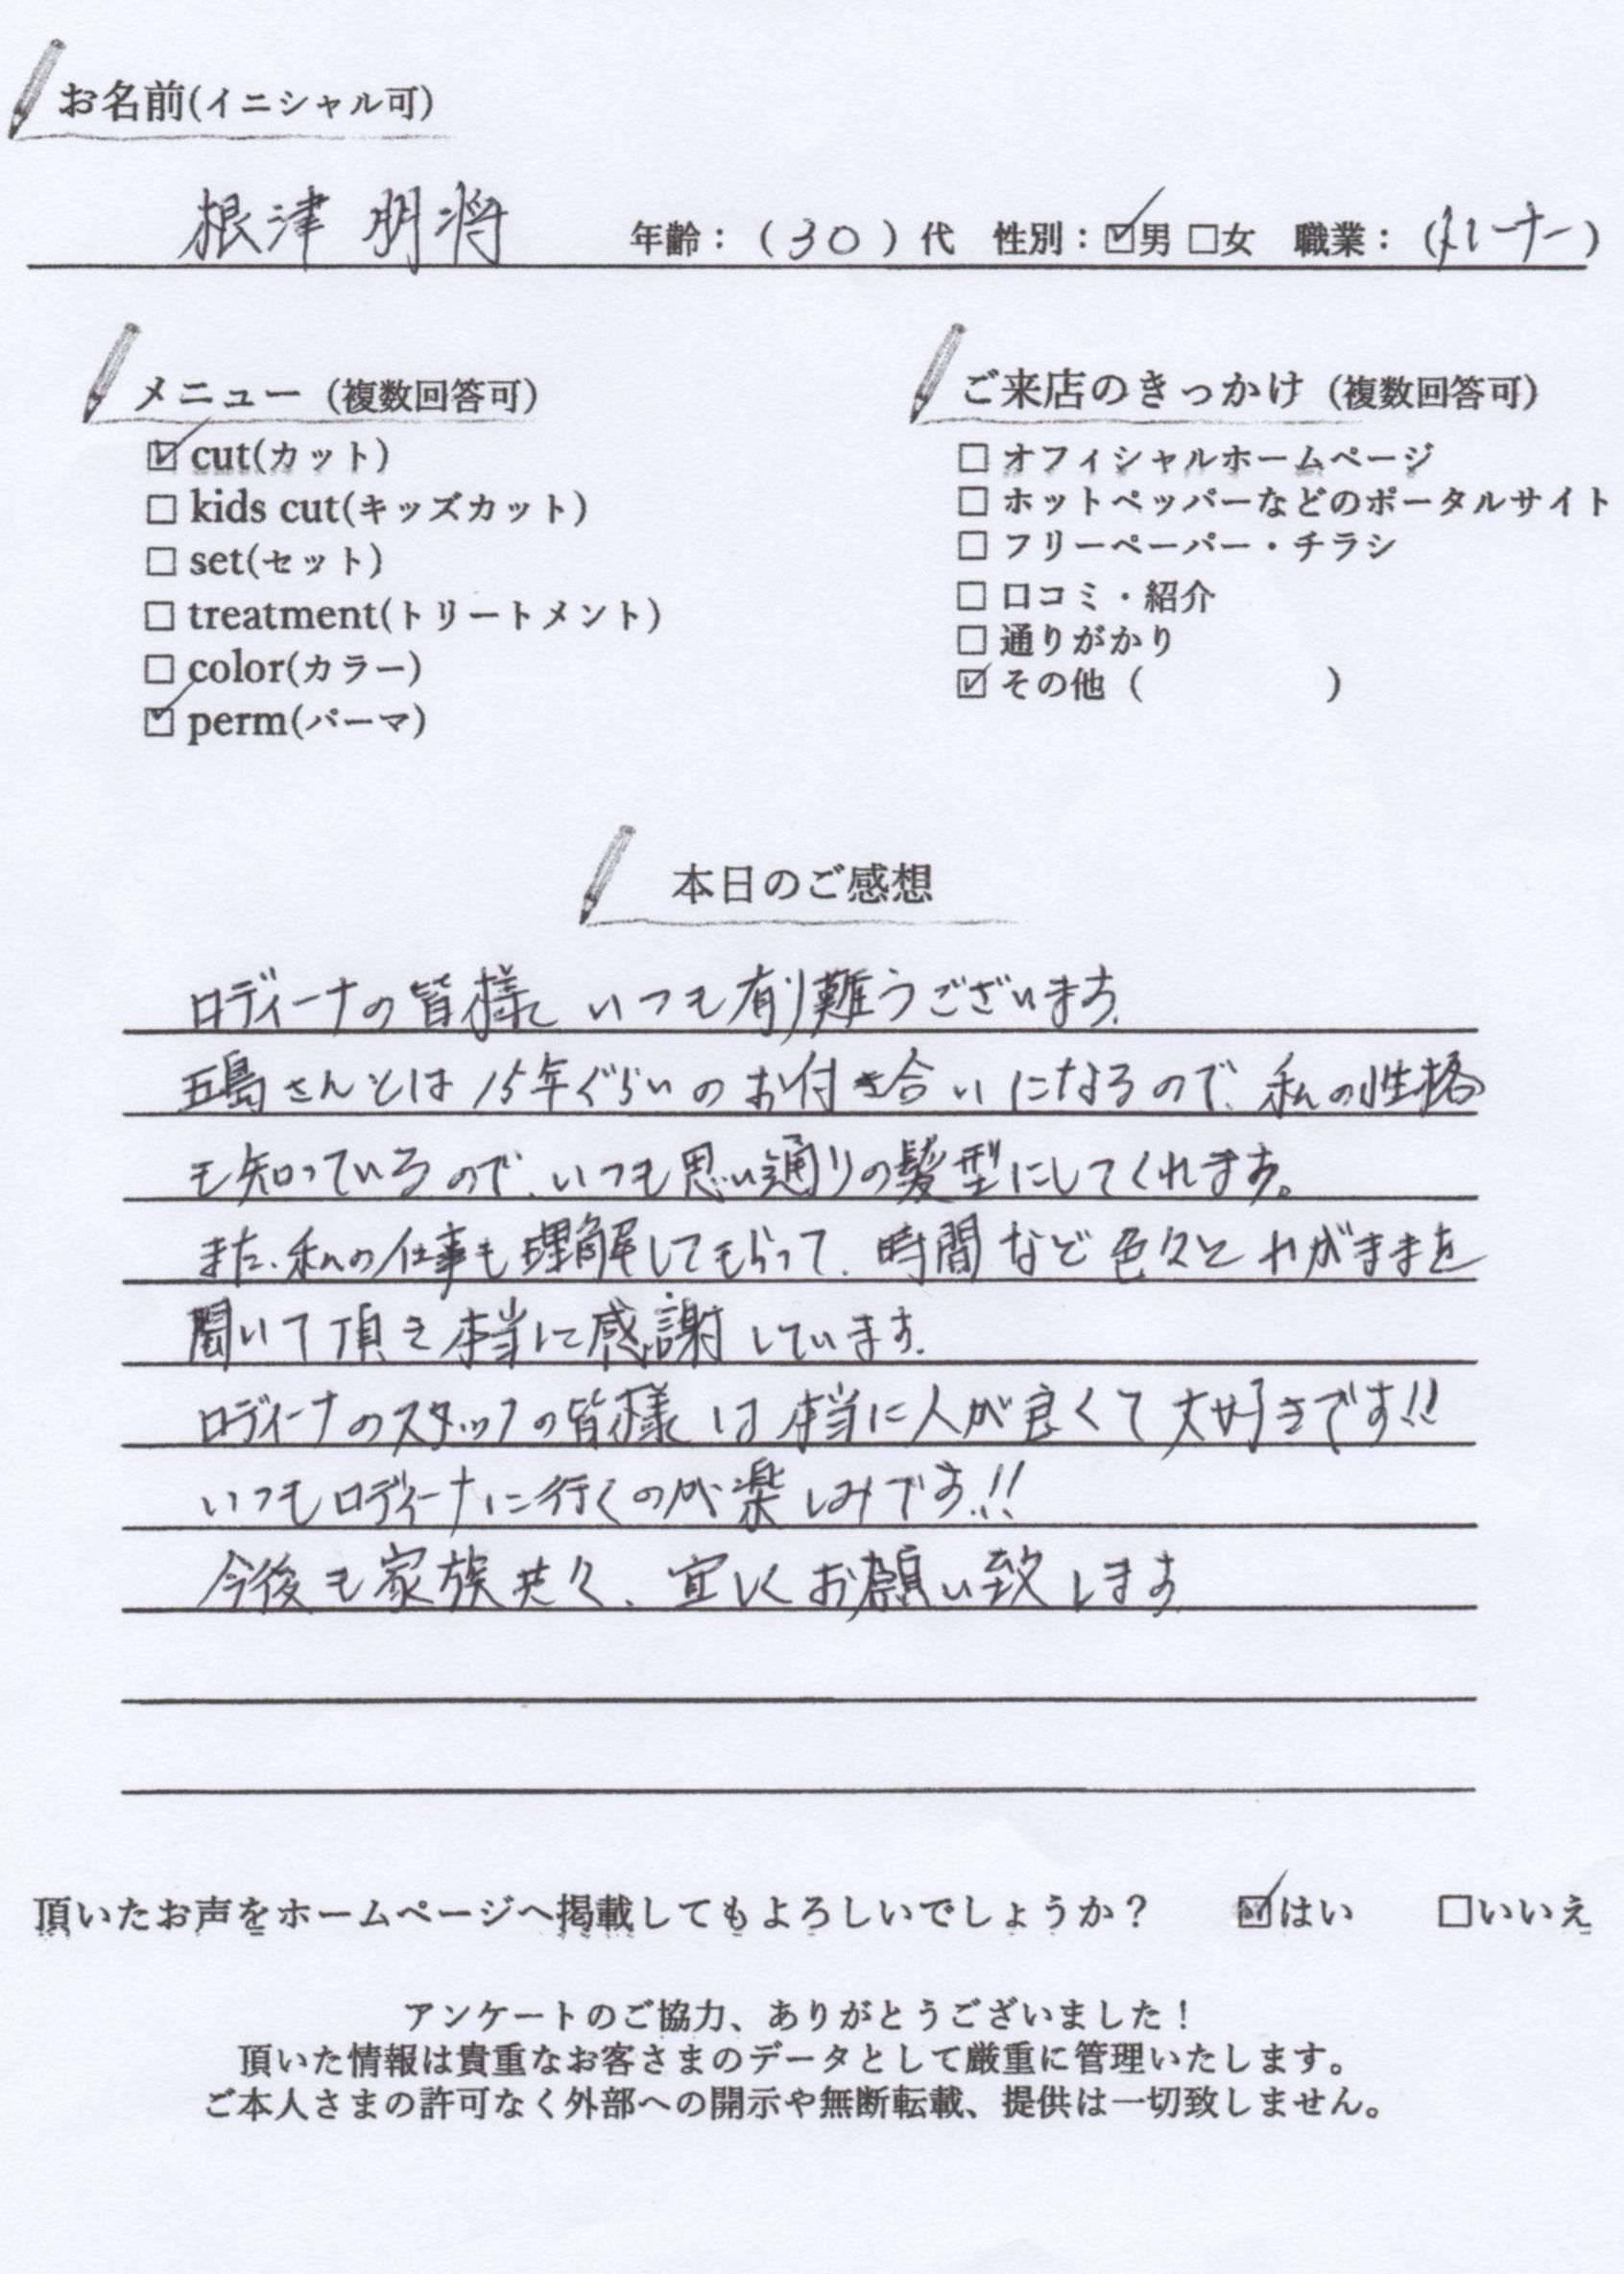 お名前(イニシャル可)
根津 朋将 年齢：（30）代 性別：☑男 □女 職業：（トレーナー）
メニュー（複数回答可）
☑ cut(カット)
□ kids cut(キッズカット)
□ set(セット)
□ treatment(トリートメント)
□ color(カラー)
☑ perm(パーマ)
ご来店のきっかけ（複数回答可）
□ オフィシャルホームページ
□ ホットペッパーなどのポータルサイト
□ フリーペーパー・チラシ
□ 口コミ・紹介
□ 通りがかり
☑ その他（ ）
本日のご感想
ロディーナの皆様 いつも有り難うございます.
五島さんとは 15年ぐらいのお付き合いになるので、私の性格
も知っているので、いつも思い通りの髪型にしてくれます。
また、私の仕事も理解してもらって、時間など色々とわがままを
聞いて頂き本当に感謝しています.
ロディーナのスタッフの皆様は本当に人が良くて大好きです!!
いつもロディーナに行くのが楽しみです!!
今後も家族共々、宜しくお願い致します
頂いたお声をホームページへ掲載してもよろしいでしょうか？ ☑はい □いいえ
アンケートのご協力、ありがとうございました！
頂いた情報は貴重なお客さまのデータとして厳重に管理いたします。
ご本人さまの許可なく外部への開示や無断転載、提供は一切致しません。